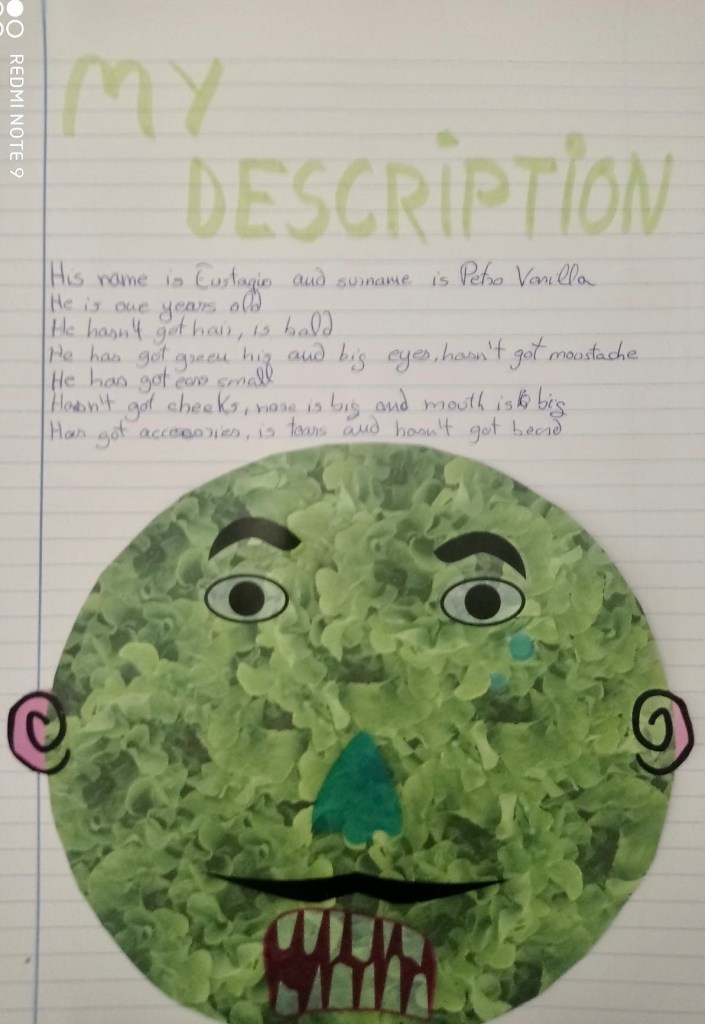 REDMI NOTE 9
MY
DESCRIPTION
His name is Eustagio and surname is Petro Vanilla
He is one years old
He hasn't got hair, is bald
He has got green big and big eyes, hasn't got moustache
He has got ears small
Hasn't got cheeks, nose is big and mouth is big
Has got accesories, is tears and hasn't got beard